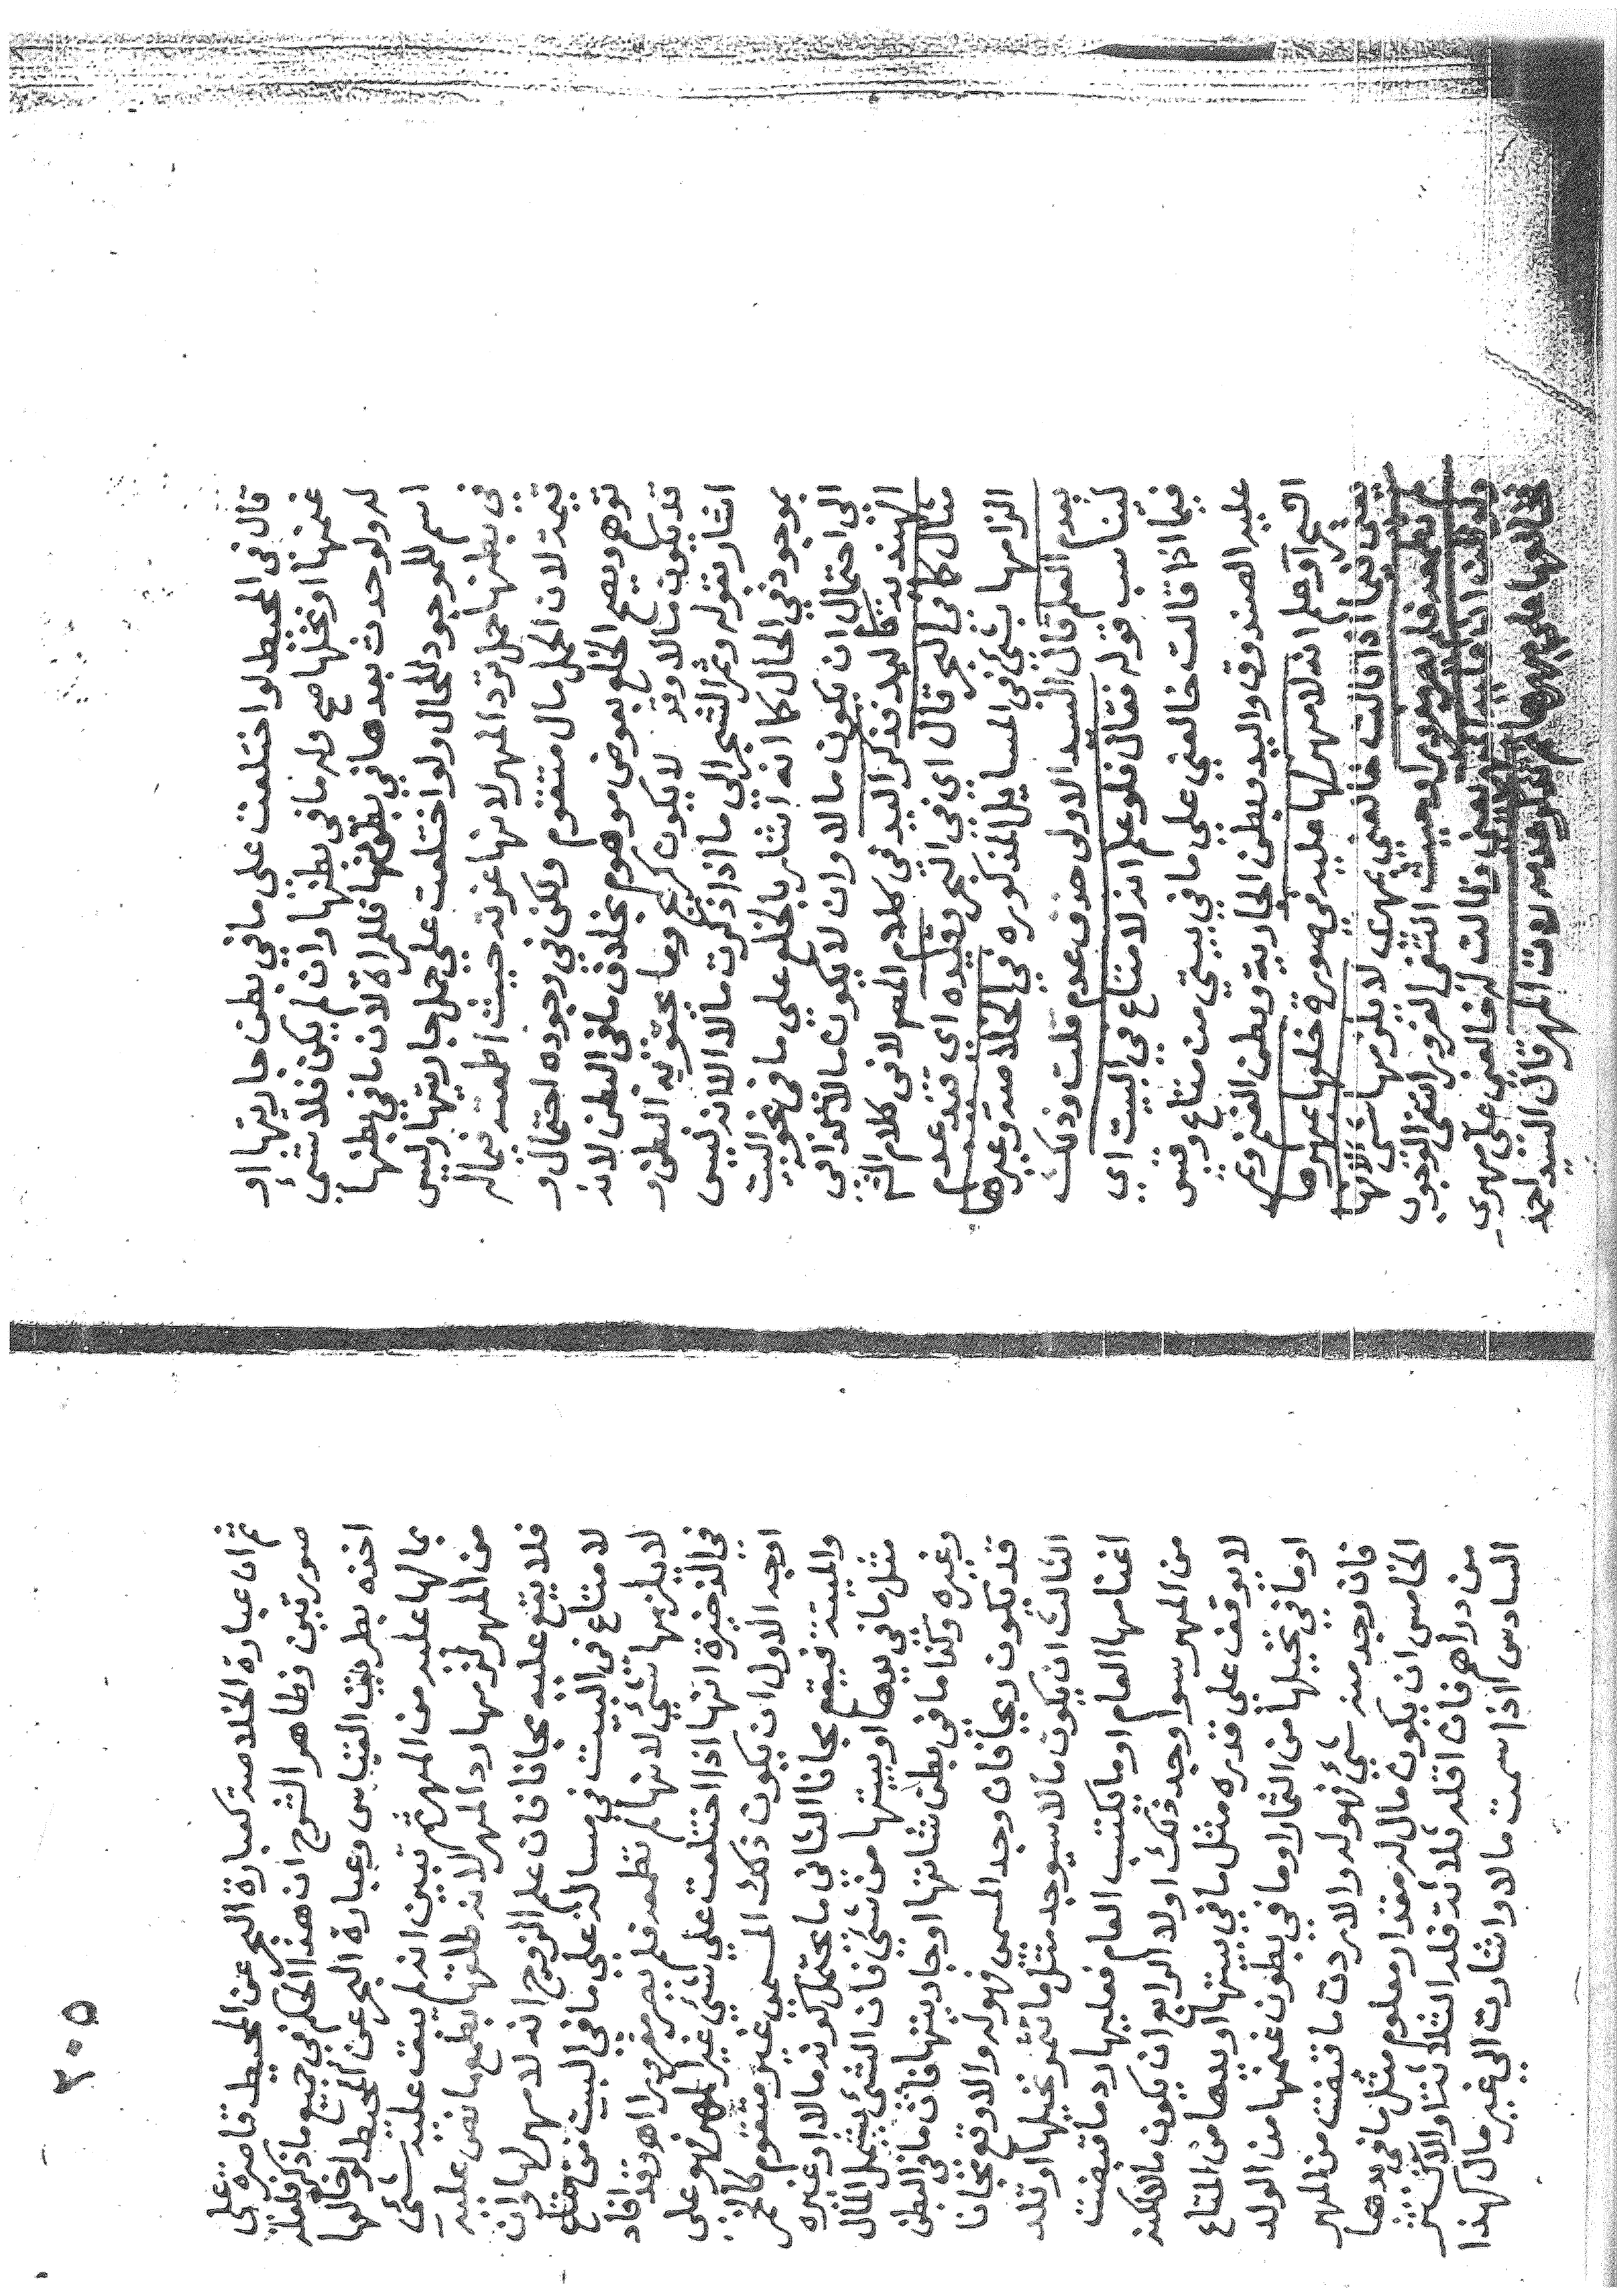 قال في المحيط لو اختلعت على ما في بطن جاريتها او
غنمها او نخلها صح وله ما في بطنها وان لم يكن فلا شئ
له ولو حدث بعدها في بطونها فللمراة لان ما في بطنها
اسم للموجود للحال ولو اختلعت على حمل جاريتها وليس
في بطنها حمل ترد المهر لانها غرته حيث اطمعته فيما له
قيمة لان الحمل مال متقوم ولكن في وجوده احتمال و
توهم ويصح الخلع بعوض موهوم بخلاف ما في البطن لانه
قد يكون مالا وقد لا يكون كريح وما تحتويه البطن و
اشار بقوله وثمر الشجر الى ما اذا ذكرت مالا الا انه ليس
بموجود في الحال كما انه اشار بالخلع على ما في نحو البيت
الى احتمال ان يكون مالا وان لا يكون مالا في
فذكر اليد في كلام المص لا في كلام الش
مثال كما في البحر قال اي في البحر وقيده اي قيد عدم
الزامها بشئ في المسايل المذكوره في الخلاصة وغيرها
بعدم العلم قال السيد الاولى حذف عدم قلت وذلك
ليناسب قوله فقال فلو علم انه لا متاع في البيت اي
فيما اذا قالت خالعني على ما في بيتي من متاع وقس
عليه الصندوق واليد وبطن الجارية وبطن الغنم
او علم انه لا مهر لها عليه في صورة خلعها بمهرها
يعني فيما اذا قالت خالعني بمهري لا يلزمها شئ لانها
لم تطمعه فلم يصر مغرورا وحيث انتفى الغرور انتفى الوجوب
ولو ظن ان عليه المهر يعني وقالت له خالعني على مهري
المهر قال السيد احمد
٢٠٥
ثم ان عبارة الخلاصة كعبارة البحر عن المحيط قاصرة على
صورتين وظاهر الشرح ان هذا الحكم في جميع ما ذكر فلعله
اخذه بطريق القياس وعبارة البحر عن المحيط لو خالعها
بما لها عليه من المهر ثم تبين انه لم يبق عليه شئ
من المهر لزمها رد المهر لانه طلقها بطمع ما نص عليه
فلا يقع عليه مجانا فان علم الزوج انه لا مهر لها وان
لا متاع في البيت في مسالة على ما في البيت من متاع
لا يلزمها شئ لانها لم تطمعه فلم يصر مغرورا وقد افاد
في الذخيرة انها اذا اختلعت على شئ غير المهر فهو على
اوجه الاول ان يكون ذلك المسمى غير متقوم كالخمر
والميتة فيقع مجانا الثاني ما يحتمل كونه مالا او غيره
مثل ما في يدها او بيتها من شئ فان الشئ يشمل المال
وغيره وكذا ما في بطن شاتها او جاريتها فان ما في البطن
قد يكون ريحا فان وجد المسمى فهو له والا وقع مجانا
الثالث ان يكون مالا سيوجد مثل ما تثمر نخيلها او تلد
اغنامها العام او ما يكتسب العام فعليها رد ما قبضت
من المهر سوا وجد ذلك اولا الرابع ان يكون مالا لكنه
لا يوقف على قدره مثل ما في بيتها او يدها من المتاع
او ما في نخيلها من الثمار او ما في بطون غنمها من الولد
فان وجد منه شئ فهو له والا ردت ما قبضت من المهر
الخامس ان يكون مال له مقدار معلوم مثل ما في يدها
من دراهم فان اقله ثلاثة فله الثلاثة او الاكثر
السادس اذا سمت مالا واشارت الى غير مال كهذا